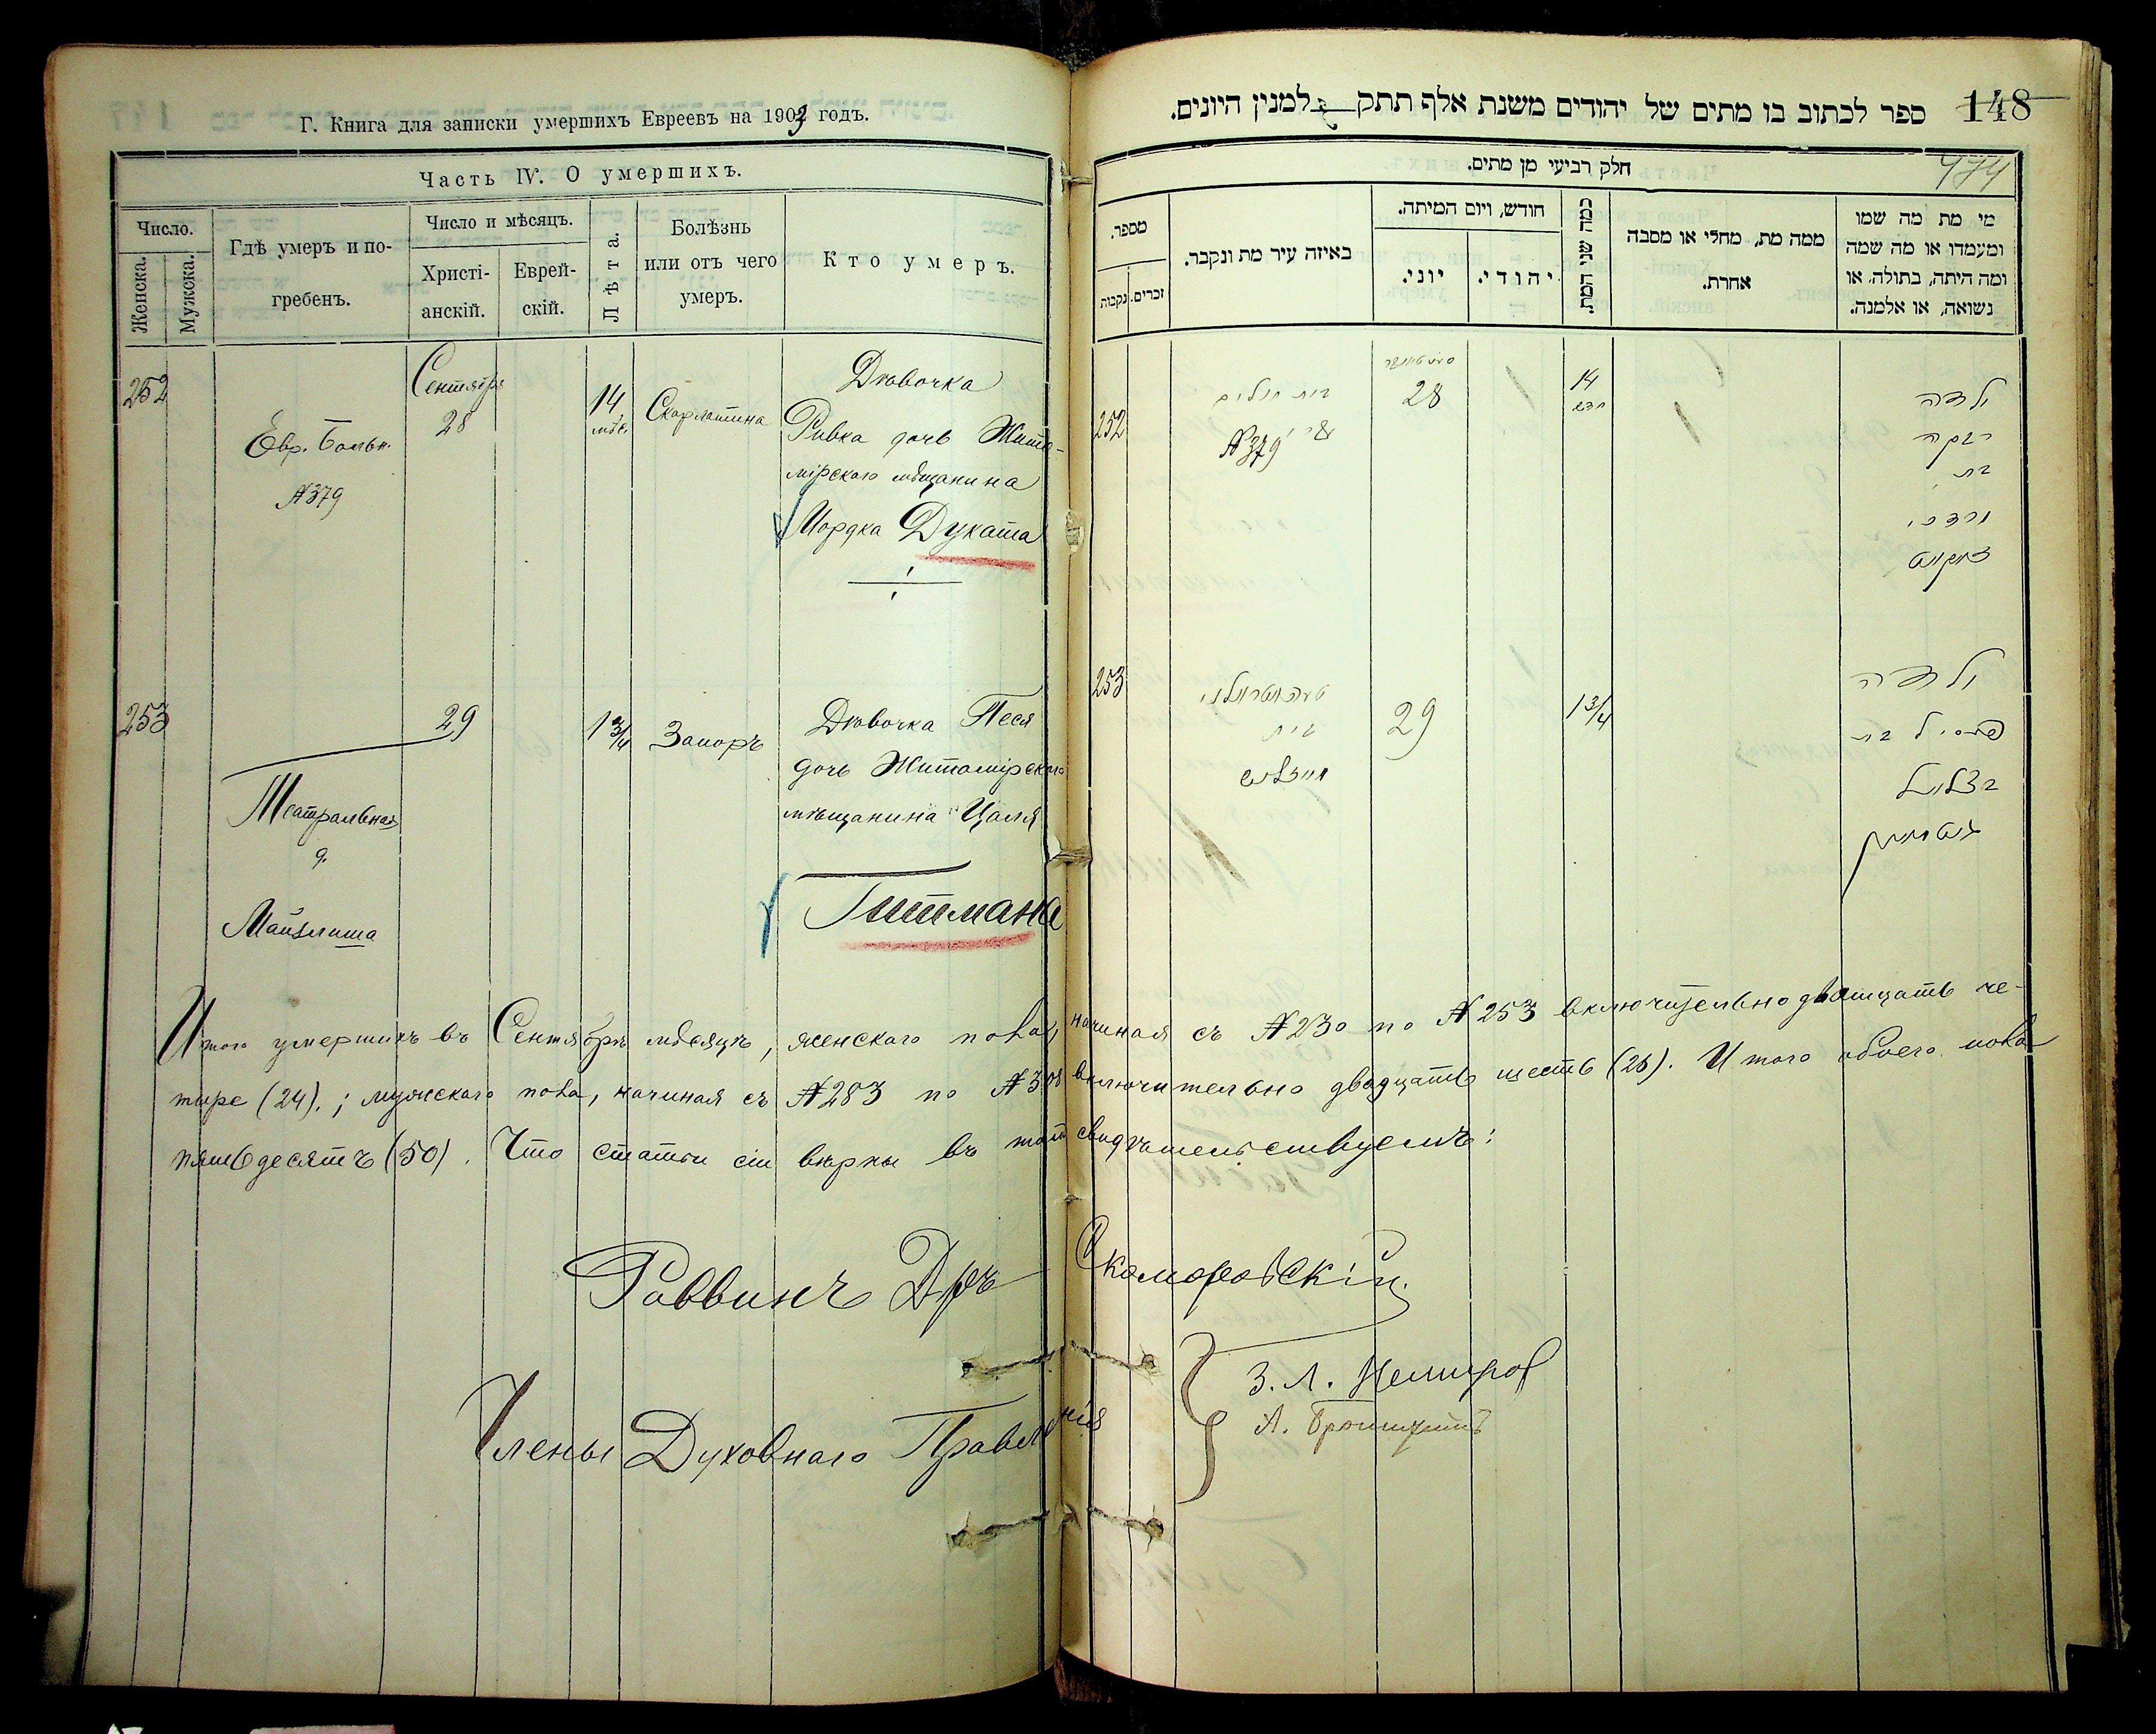 Г. Книга для записки умершихъ Евреевъ на 1903 годъ.
Часть IV. О умершихъ.
Число.
Женска.
Мужска.
Гдѣ умеръ и по-
гребенъ.
Число и мѣсяцъ.
Христі-
анскій.
Еврей-
скій.
Лѣта.
Болѣзнь
или отъ чего
умеръ.
Кто умеръ.
252
Евр. Больн.
№ 379
Сентября
28
14
мѣс.
Скарлатина
Дѣвочка
Ривка дочь Жито-
мірскаго мѣщанина
Мордка Дуката
253
29
Театральная
д.
Майзлиша
1 3/4
Запоръ
Дѣвочка Песя
дочь Житомірскаго
мѣщанина Цаля
Гитмана
148
ספר לכתוב בו מתים של יהודים משנת אלף תתק 3 למנין היונים.
474
חלק רביעי מן מתים.
מספר.
נקבות
זכרים.
באיזה עיר מת ונקבר.
חודש, ויום המיתה.
יוני.
יהודי.
כמה שני המת.
ממה מת, מחלי או מסבה
אחרת.
מי מת מה שמו
ומעמדו או מה שמה
ומה היתה, בתולה, או
נשואה, או אלמנה.
252
בית חולים
№ 379
28
14
חדש
ילדה
רבקה
בת
מרדכי
דוקאט
253
בית
29
1 3/4
ילדה
פעסיל בת
בצלאל
גיטמאן
Итого умершихъ въ Сентябрѣ мѣсяцѣ, женскаго пола, начиная съ № 230 по № 253 включительно двадцать че-
тыре (24).; мужскаго пола, начиная съ № 283 по № 308 включительно двадцать шесть (26). Итого обоего пола
пятьдесятъ (50). Что статьи сіи вѣрны въ томъ свидѣтельствуемъ:
Раввинъ Дръ Скоморовскій.
Члены Духовнаго Правленія
З. Л. Немиров